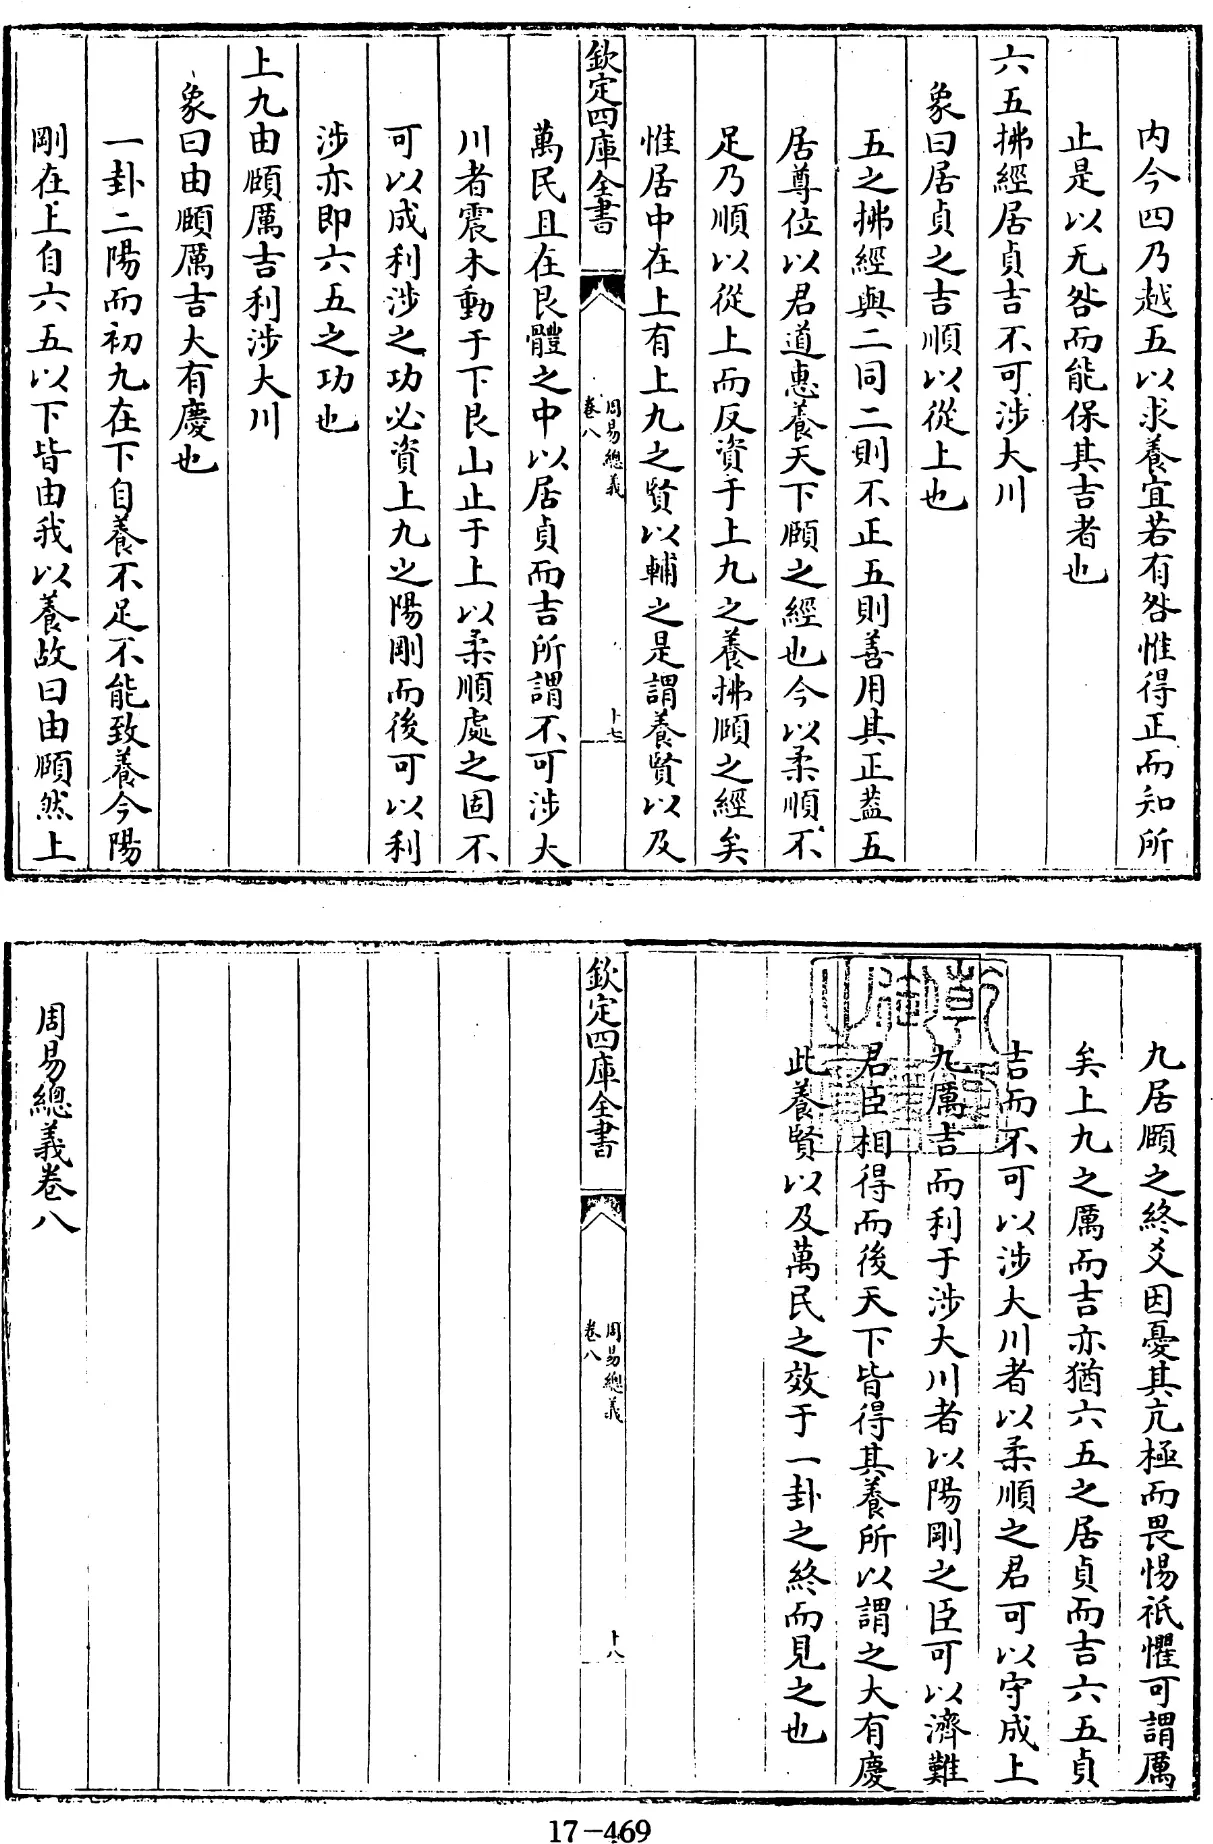 内今四乃越五以求養宜若有咎惟得正而知所
止是以无咎而能保其吉者也
六五拂經居貞吉不可涉大川
象曰居貞之吉順以從上也
五之拂經與二同二則不正五則善用其正葢五
居尊位以君道惠養天下頤之經也今以柔順不
足乃順以從上而反資于上九之養拂頤之經矣
惟居中在上有上九之賢以輔之是謂養賢以及
欽定四庫全書
周易總義
卷八
十七
萬民且在艮體之中以居貞而吉所謂不可涉大
川者震木動于下艮山止于上以柔順處之固不
可以成利涉之功必資上九之陽剛而後可以利
涉亦即六五之功也
上九由頤厲吉利涉大川
象曰由頤厲吉大有慶也
一卦二陽而初九在下自養不足不能致養今陽
剛在上自六五以下皆由我以養故曰由頤然上
九居頤之終爻因憂其亢極而畏惕祇懼可謂厲
矣上九之厲而吉亦猶六五之居貞而吉六五貞
吉而不可以涉大川者以柔順之君可以守成上
九厲吉而利于涉大川者以陽剛之臣可以濟難
君臣相得而後天下皆得其養所以謂之大有慶
此養賢以及萬民之效于一卦之終而見之也
欽定四庫全書
周易總義
卷八
十八
周易總義卷八
17-469